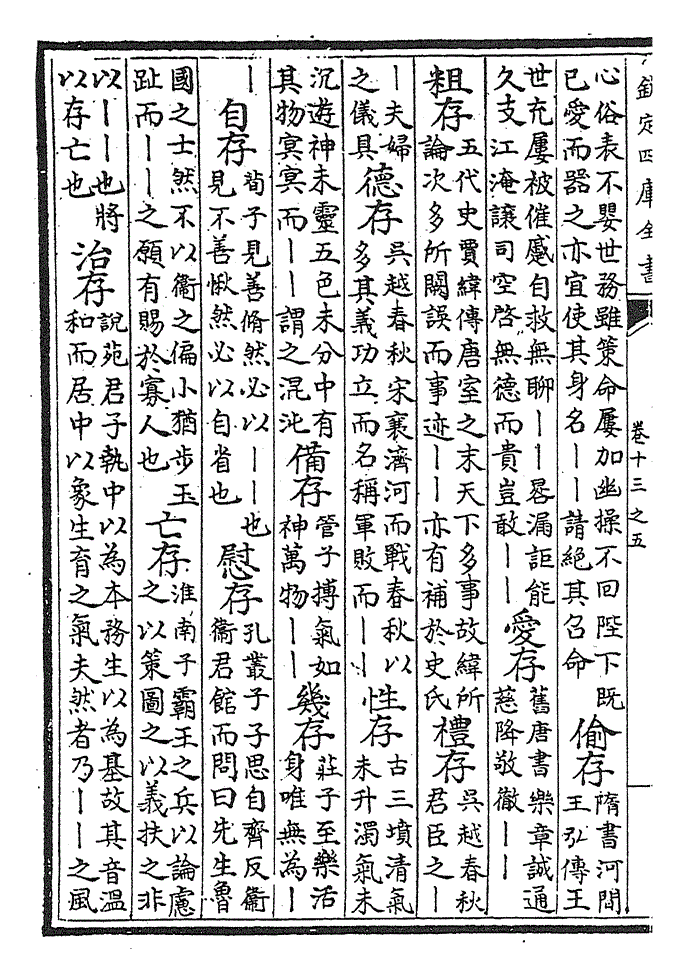 欽定四庫全書
卷十三之五
心俗表不嬰世務雖策命屢加幽操不回陛下既
已愛而器之亦宜使其身名丨丨請絕其召命
偷存
隋書河間
王弘傳王
世充屢被催蹙自救無聊丨丨晷漏詎能
久支江淹讓司空啓無德而貴豈敢丨丨
愛存
舊唐書樂章誠通
慈降敬徹丨丨
粗存
五代史賈緯傳唐室之末天下多事故緯所
論次多所闕誤而事迹丨丨亦有補於史氏
禮存
吳越春秋
君臣之丨
丨夫婦
之儀具
德存
吳越春秋宋襄濟河而戰春秋以
多其義功立而名稱軍敗而丨丨
性存
古三墳清氣
未升濁氣未
沉遊神未靈五色未分中有
其物冥冥而丨丨謂之混沌
備存
管子摶氣如
神萬物丨丨
幾存
莊子至樂活
身唯無為丨
丨
自存
荀子見善脩然必以丨丨也
見不善愀然必以自省也
慰存
孔叢子子思自齊反衛
衛君館而問曰先生魯
國之士然不以衛之偏小猶步玉
趾而丨丨之願有賜於寡人也
亡存
淮南子霸王之兵以論慮
之以策圖之以義扶之非
以丨丨也將
以存亡也
治存
說苑君子執中以為本務生以為基故其音溫
和而居中以象生育之氣夫然者乃丨丨之風